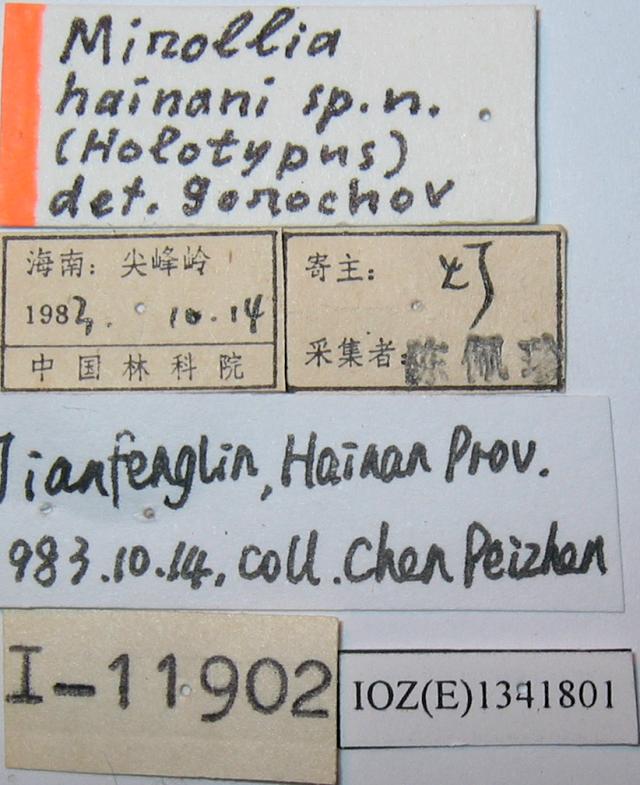 Mirollia
hainani sp.n.
(Holotypus)
det. gorochov
海南: 尖峰岭
1983. 10.14
中国林科院
寄主: 灯
采集者: 陈佩珍
Jianfenglin, Hainan Prov.
983.10.14. coll. Chen Peizhen
I-11902
IOZ(E)1341801